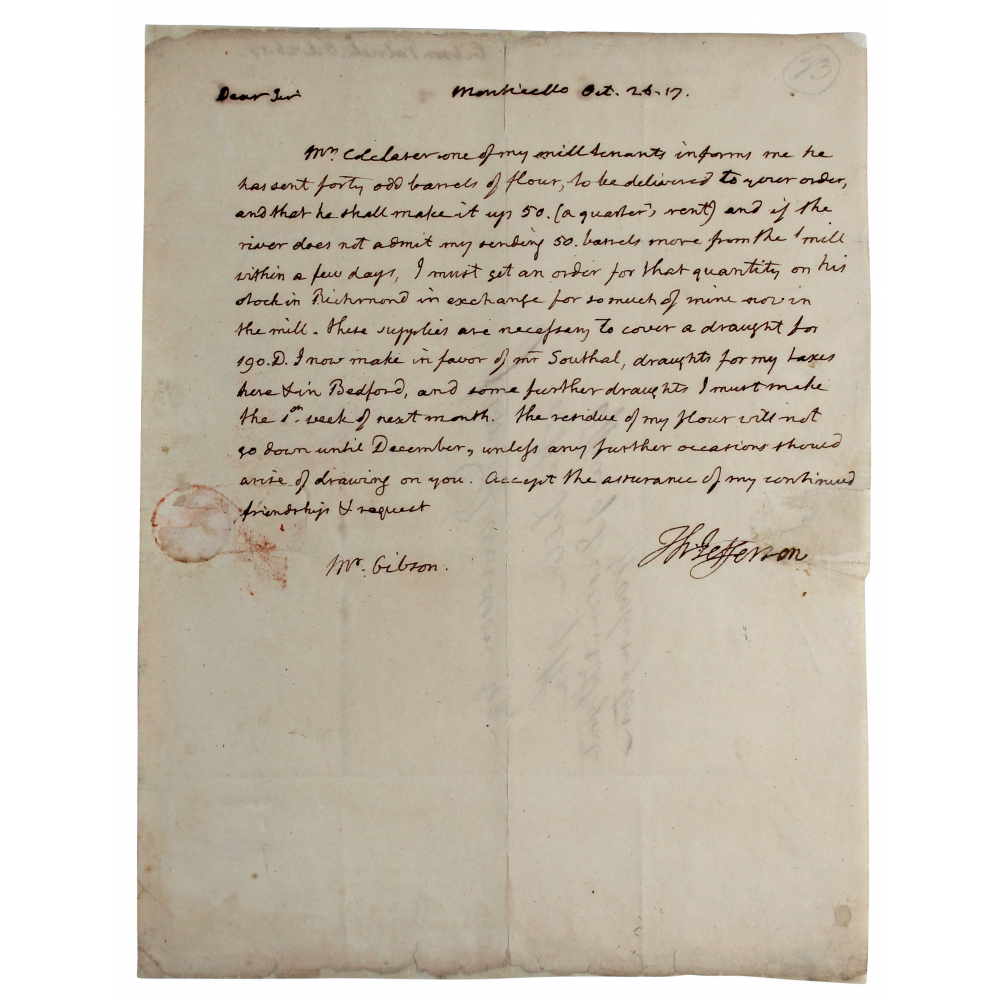 23
Dear Sir Monticello Oct. 26. 17.
Mr. Colclaser one of my mill tenants informs me he
has sent forty odd barrels of flour, to be delivered to your order,
and that he shall make it up 50. (a quarter's rent) and if the
river does not admit my sending 50. barrels more from the mill
within a few days, I must get an order for that quantity on his
stock in Richmond in exchange for so much of mine now in
the mill. these supplies are necessary to cover a draught for
190.D. I now make in favor of mr Southal, draughts for my taxes
here & in Bedford, and some further draughts I must make
the 1st. week of next month. the residue of my flour will not
go down until December, unless any further occasions should
arise of drawing on you. Accept the assurance of my continued
friendship & request
Th: Jefferson
Mr. Gibson.